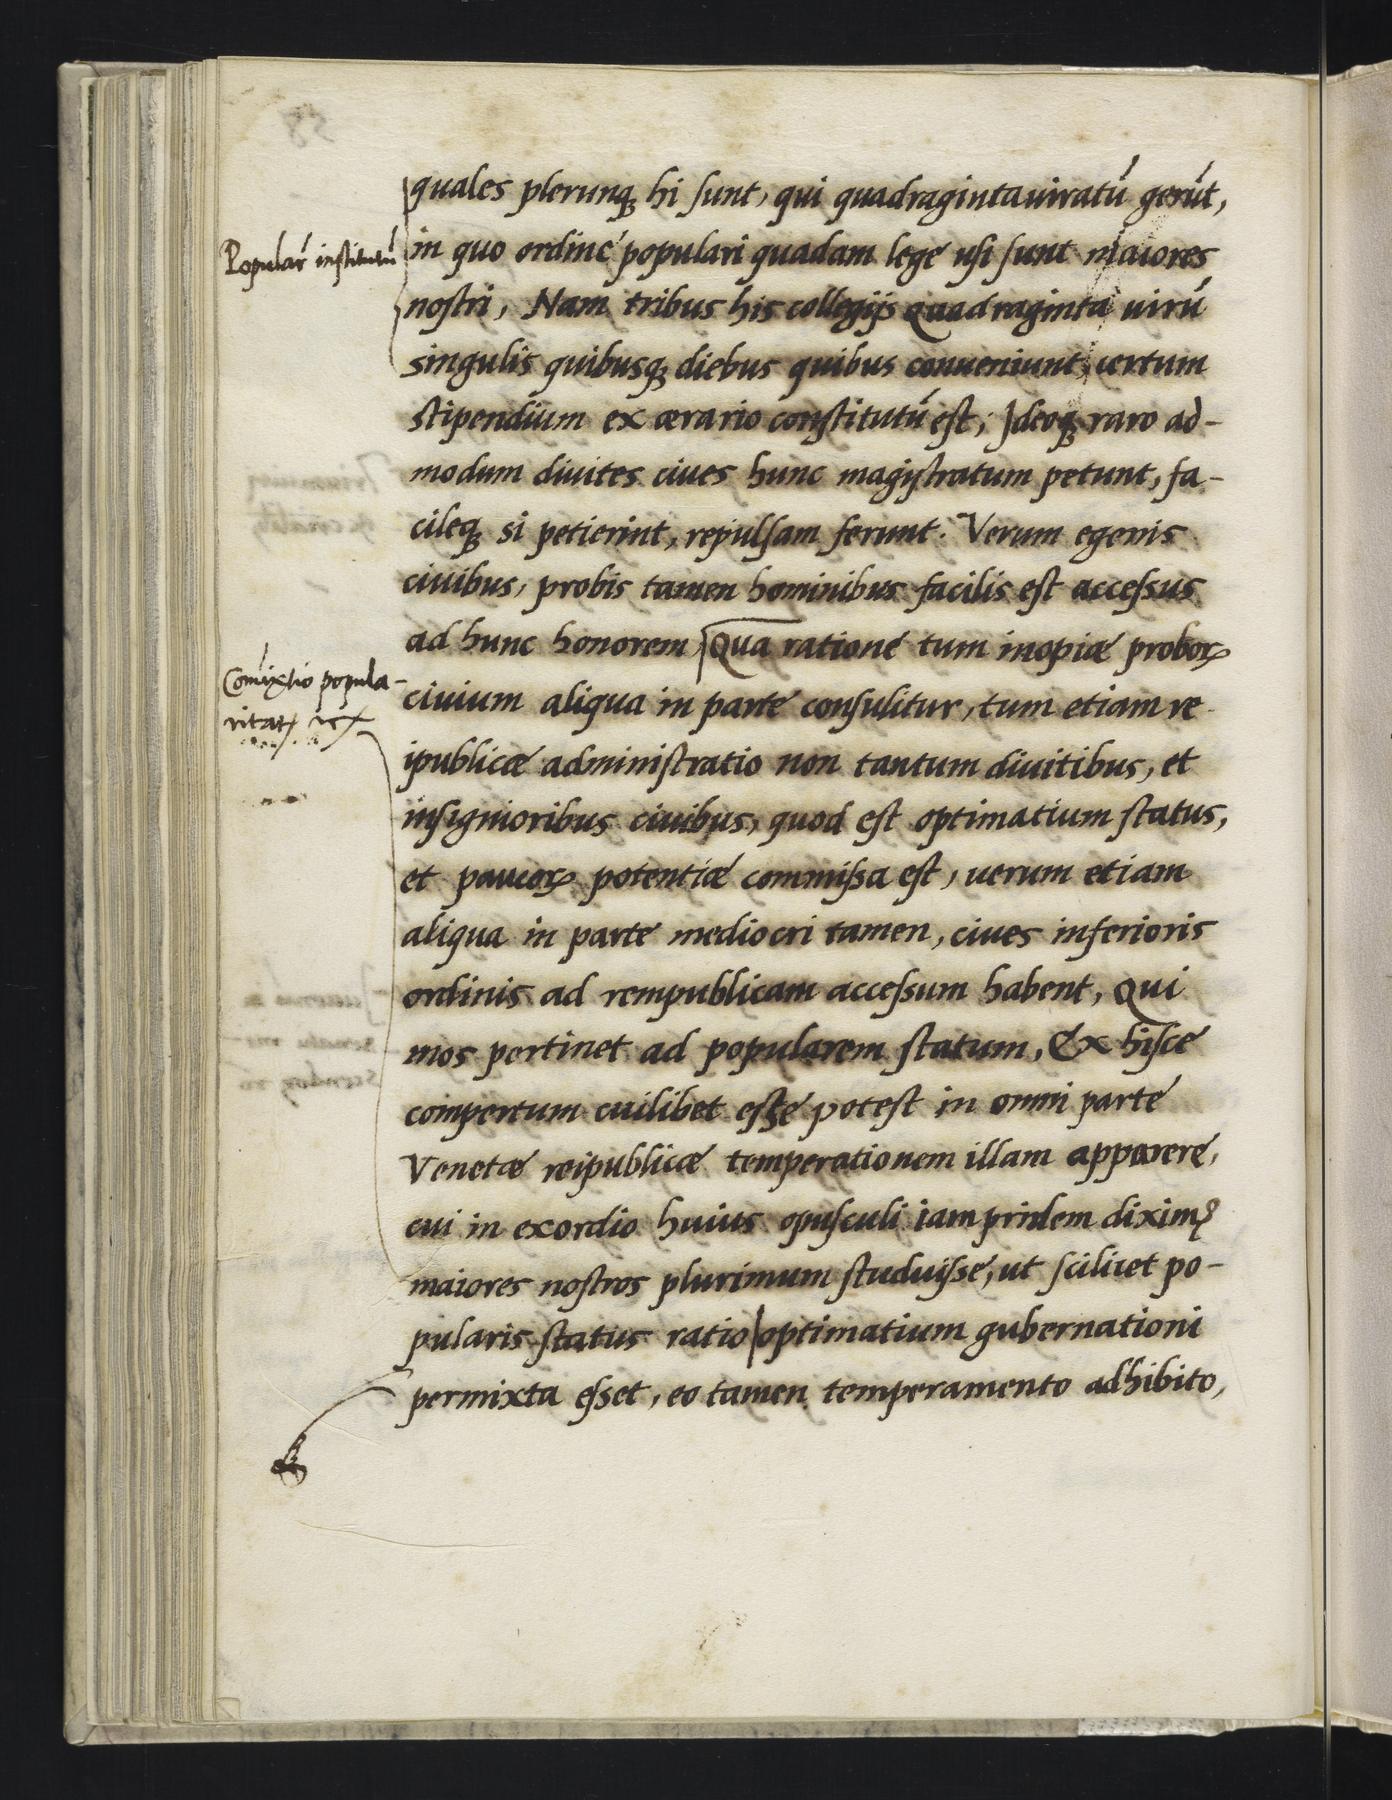 quales plerunq hi sunt, qui quadragintauiratú gerút,
Popular institutú
in quo ordine populari quadam lege usi sunt maiores
nostri, Nam tribus his collegijs Quadraginta uirú
singulis quibusq diebus quibus conueniunt, certum
stipendium ex ærario constitutú est, Ideoq raro ad-
modum diuites ciues hunc magistratum petunt, fa-
cileq si petierint, repulsam ferunt. Verum egenis
ciuibus, probis tamen hominibus facilis est accessus
ad hunc honorem Qua ratione tum inopiæ proboꝝ
Comixtio popula-
ritatꝭ
ciuium aliqua in parte consulitur, tum etiam re-
ipublicæ administratio non tantum diuitibus, et
insignioribus ciuibus, quod est optimatium status,
et paucoꝝ potentiæ commissa est, uerum etiam
aliqua in parte mediocri tamen, ciues inferioris
ordinis ad rempublicam accessum habent, Qui
mos pertinet ad popularem statum, Ex hisce
compertum cuilibet esse potest in omni parte
Venetæ reipublicæ temperationem illam apparere,
cui in exordio huius opusculi iam pridem diximꝰ
maiores nostros plurimum studuisse, ut scilicet po-
pularis status ratio optimatium gubernationi
permixta esset, eo tamen temperamento adhibito,